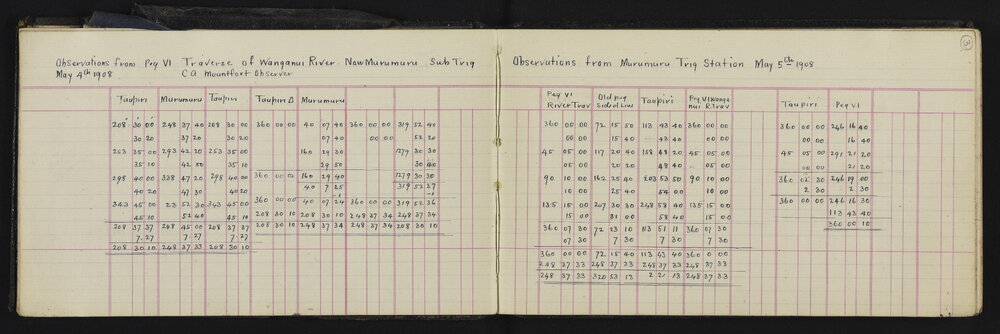 Observations from Peg VI Traverse of Wanganui River. Now Murumuru Sub Trig
May 4th 1908 CA Mountfort Observer
Taupiri Murumuru Taupiri Taupiri Δ Murumuru
208 30 00 248 37 40 208 30 00 360 00 00 40 07 40 360 00 00 319 52 40
30 20 37 20 30 20 07 40 00 00 52 20
253 35 00 293 42 20 253 35 00 160 29 30 1279 30 30
35 10 42 50 35 10 29 50 30 40
298 40 00 338 47 20 298 40 00 360 00 00 160 29 40 1279 30 30
40 20 47 30 40 20 40 7 25 319 52 37
343 45 00 23 52 30 343 45 00 360 00 00 40 07 24 360 00 00 319 52 36
45 10 52 40 45 10 208 30 10 208 30 10 248 37 34 248 37 34
208 37 37 248 45 00 208 37 37 208 30 10 248 37 34 248 37 34 208 30 10
7.27 7.27 7.27
208 30 10 248 37 33 208 30 10
3
Observations from Murumuru Trig Station May 5th 1908
Peg VI River Trav Old peg Taupiri Peg VI Wanganui R. Trav Taupiri Peg VI
360 00 00 72 15 50 113 43 40 360 00 00 360 00 00 246 16 40
00 00 15 40 43 40 00 00 00 00 16 40
45 05 00 117 20 40 158 48 20 45 05 00 45 05 00 291 21 20
05 00 20 20 48 40 05 00 00 00 21 20
90 10 00 162 25 40 203 53 50 90 10 00 360 02 30 246 19 00
10 00 25 40 54 00 10 00 2 30 2 30
135 15 00 207 30 30 248 58 40 135 15 00 360 00 00 246 16 30
15 00 31 00 58 40 15 00 113 43 40
360 07 30 72 23 10 113 51 11 360 07 30 360 00 10
07 30 7 30 7 30 7 30
360 00 00 72 15 40 113 43 40 360 0 00
248 37 33 248 37 33 248 37 33 248 37 33
248 37 33 320 53 13 2 21 13 248 37 33